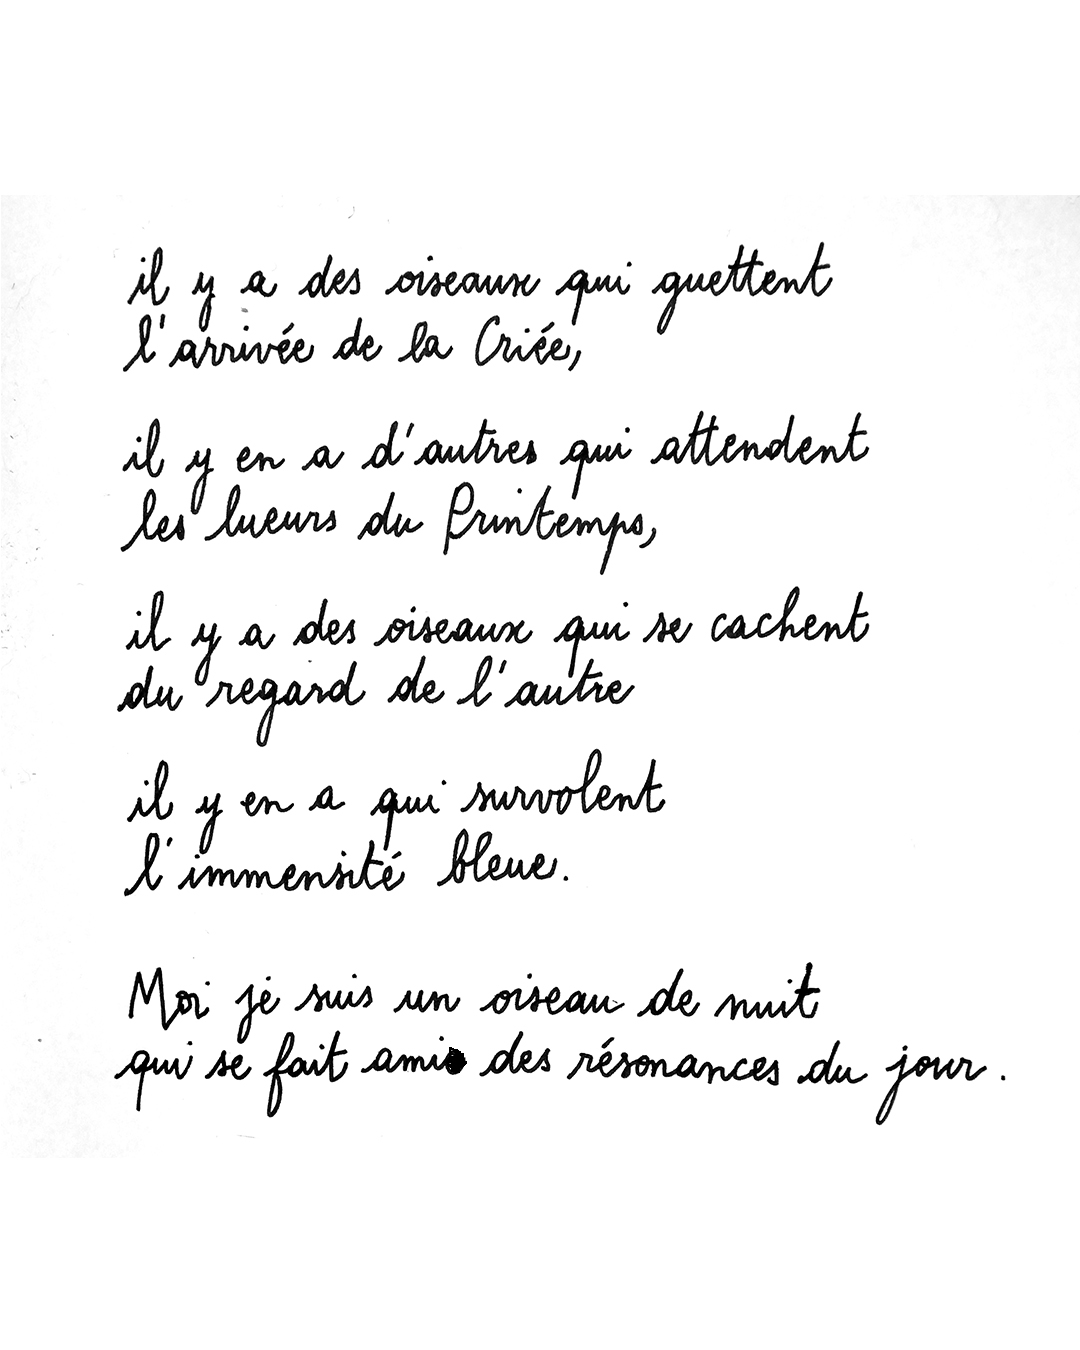 il y a des oiseaux qui guettent
l'arrivée de la Criée,
il y en a d'autres qui attendent
les lueurs du Printemps,
il y a des oiseaux qui se cachent
du regard de l'autre
il y en a qui survolent
l'immensité bleue.
Moi je suis un oiseau de nuit
qui se fait ami des résonances du jour.